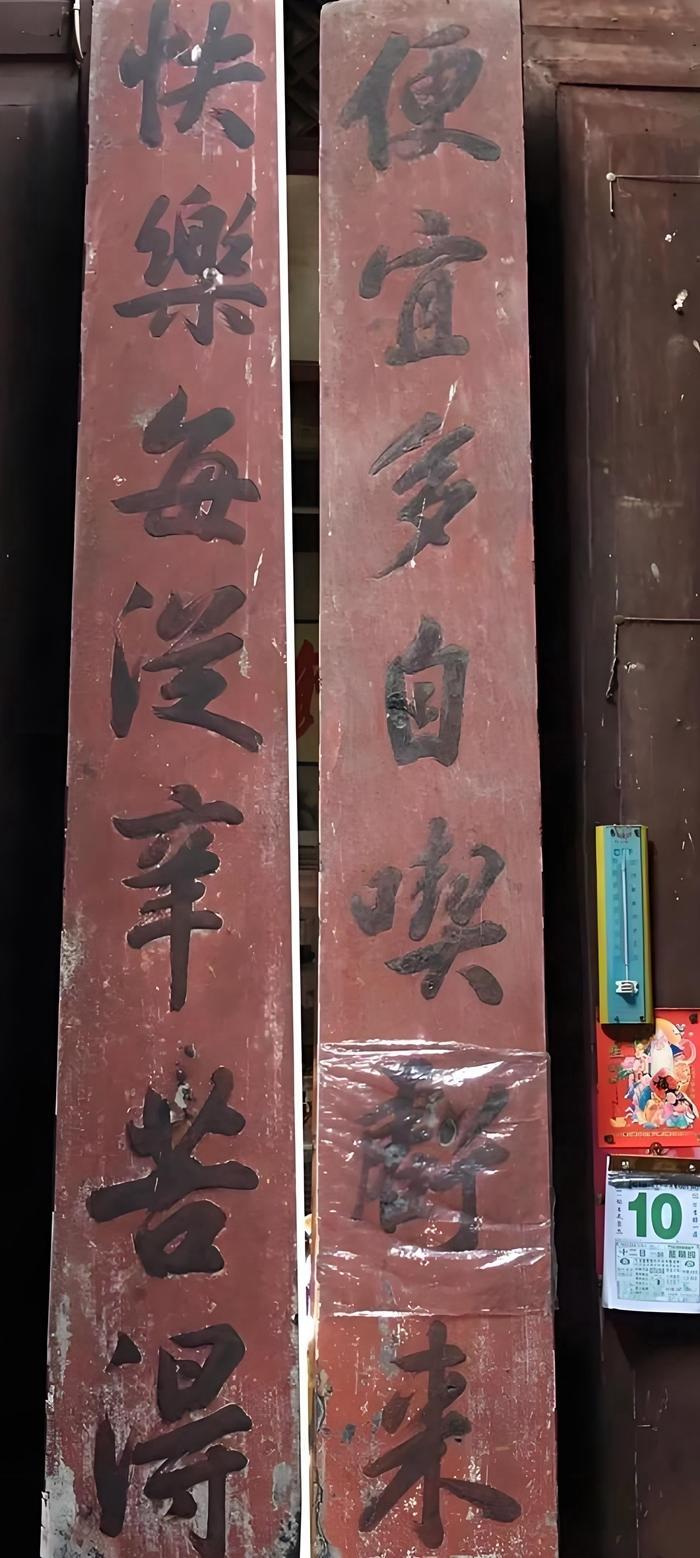 快樂每從辛苦得
便宜多自喫虧来
10